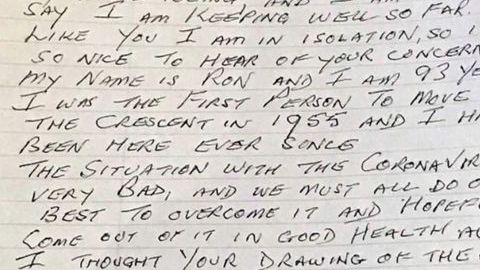 SAY I AM KEEPING WELL SO FAR.
LIKE YOU I AM IN ISOLATION, SO I
SO NICE TO HEAR OF YOUR CONCERN
MY NAME IS RON AND I AM 93 YE
I WAS THE FIRST PERSON TO MOVE
THE CRESCENT IN 1955 AND I HA
BEEN HERE EVER SONCE
THE SITUATION WITH THE CORONAVIR
VERY BAD, AND WE MUST ALL DO O
BEST TO OVERCOME IT AND HOPEF
COME OUT OF IT IN GOOD HEALTH A
I THOUGHT YOUR DRAWING OF THE